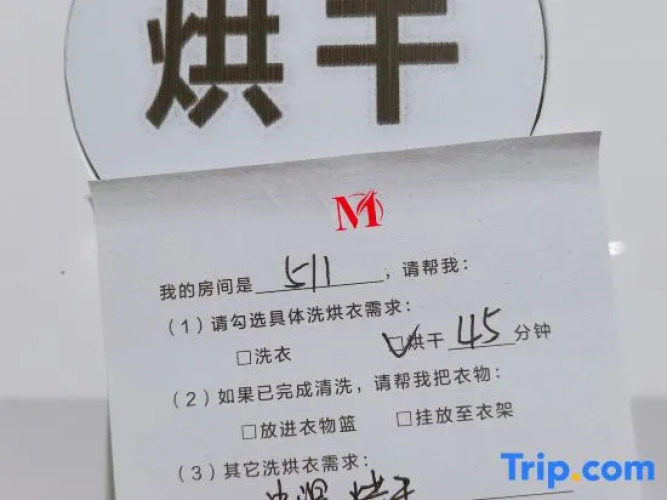 烘干
M
我的房间是 511 ,请帮我:
(1)请勾选具体洗烘衣需求:
□洗衣 ☑烘干 45 分钟
(2)如果已完成清洗,请帮我把衣物:
□放进衣物篮 □挂放至衣架
(3)其它洗烘衣需求:
Trip.com